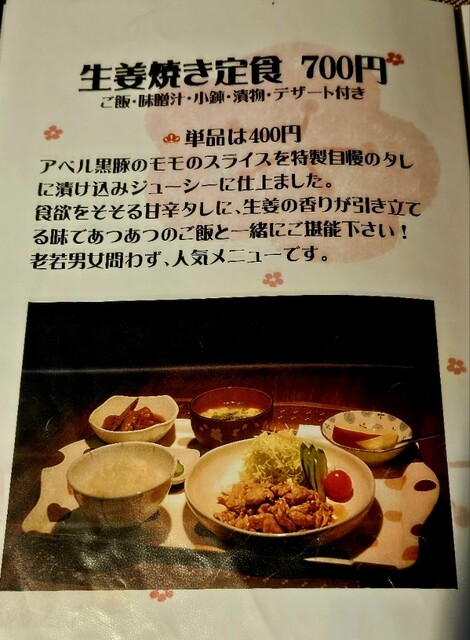 生姜焼き定食 700円
ご飯・味噌汁・小鉢・漬物・デザート付き
単品は400円
アベル黒豚のモモのスライスを特製自慢のタレ
に漬け込みジューシーに仕上ました。
食欲をそそる甘辛タレに、生姜の香りが引き立て
る味であつあつのご飯と一緒にご堪能下さい！
老若男女問わず、人気メニューです。